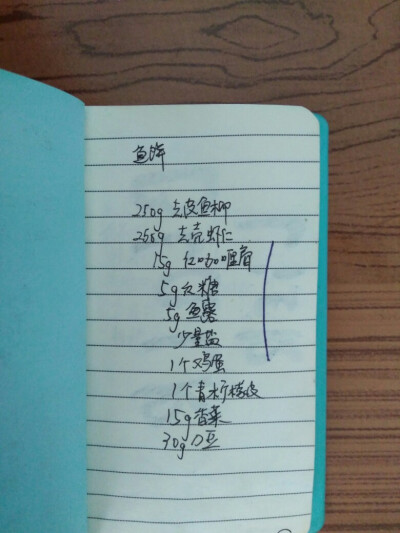 鱼饼
250g 去皮鱼柳
250g 去壳虾仁
15g 红咖喱膏
5g 红糖
5g 鱼露
少量盐
1个鸡蛋
1个青柠檬皮
15g 香菜
30g 刀豆